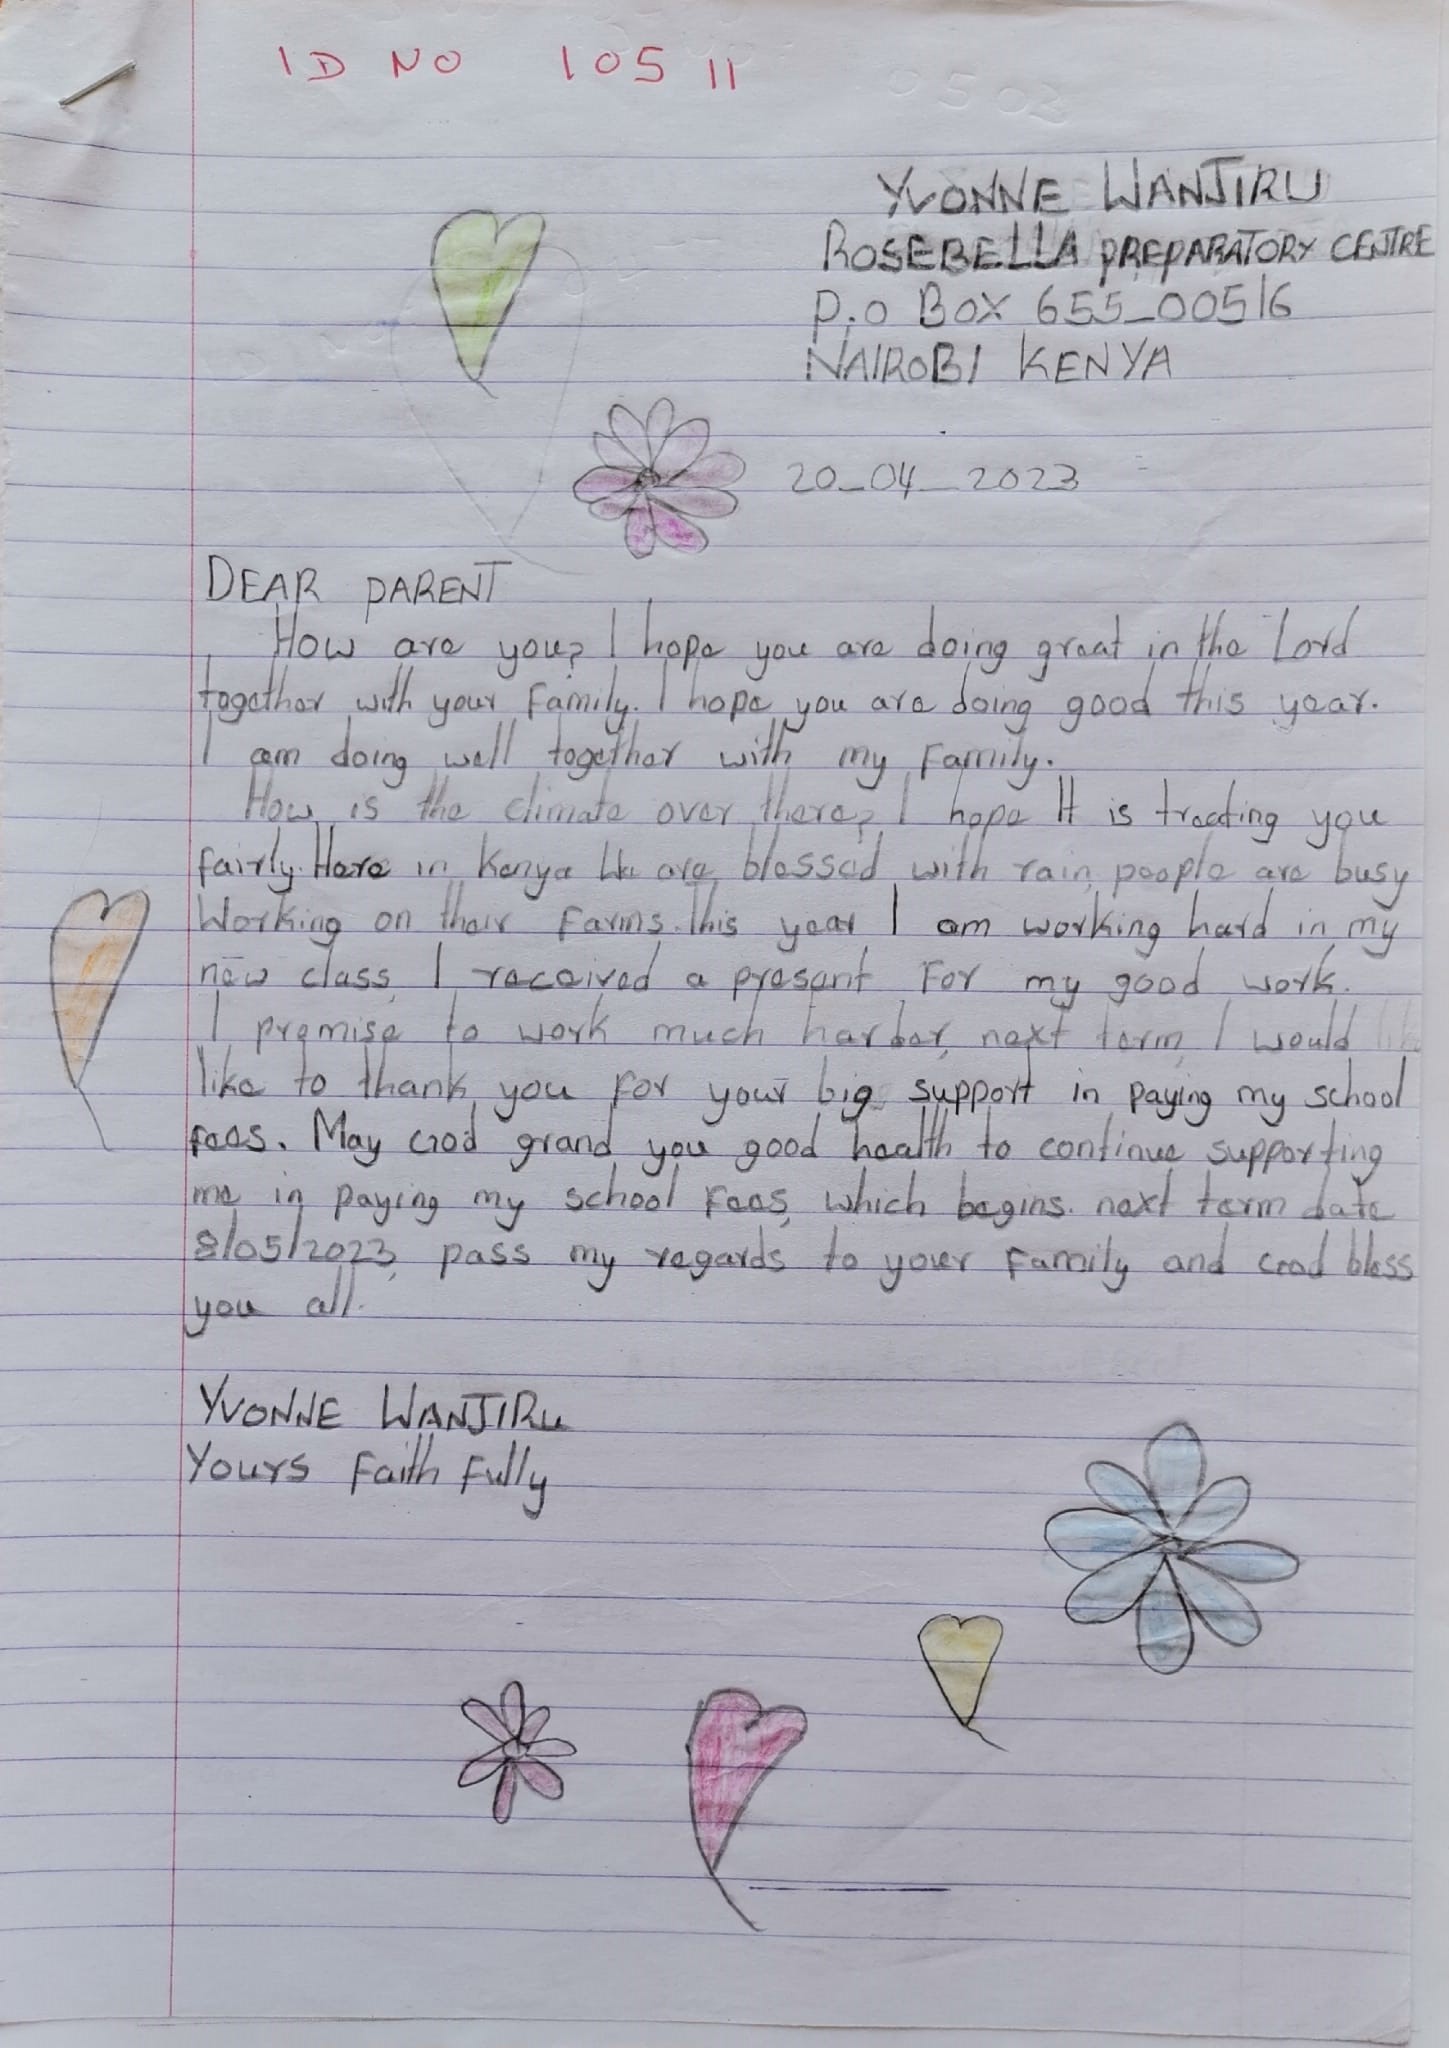 ID NO 10511
YVONNE WANJIRU
ROSEBELLA PREPARATORY CENTRE
P.O BOX 655_00516
NAIROBI KENYA
20_04_2023
DEAR PARENT
How are you? I hope you are doing great in the Lord
together with your Family. I hope you are doing good this year.
I am doing well together with my Family.
How is the climate over there? I hope It is treating you
fairly. Here in Kenya We are blessed with rain, people are busy
Working on their Farms. This year I am working hard in my
new class, I received a present For my good work.
I promise to work much harder, next term, I would like
like to thank you For your big support in paying my school
fees. May God grand you good health to continue supporting
me in paying my school Fees, which begins next term date
8/05/2023, pass my regards to your Family and God bless
you all.
YVONNE WANJIRU
Yours Faith Fully